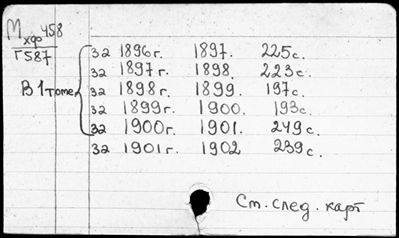 Мхфо 458
Г587
В 1 томе
за 1896г. 1897. 225с.
за 1897г. 1898. 223с.
за 1898г. 1899. 197с.
за 1899г. 1900. 193с.
за 1900г. 1901. 249с.
за 1901г. 1902 239с.
См. след. карт